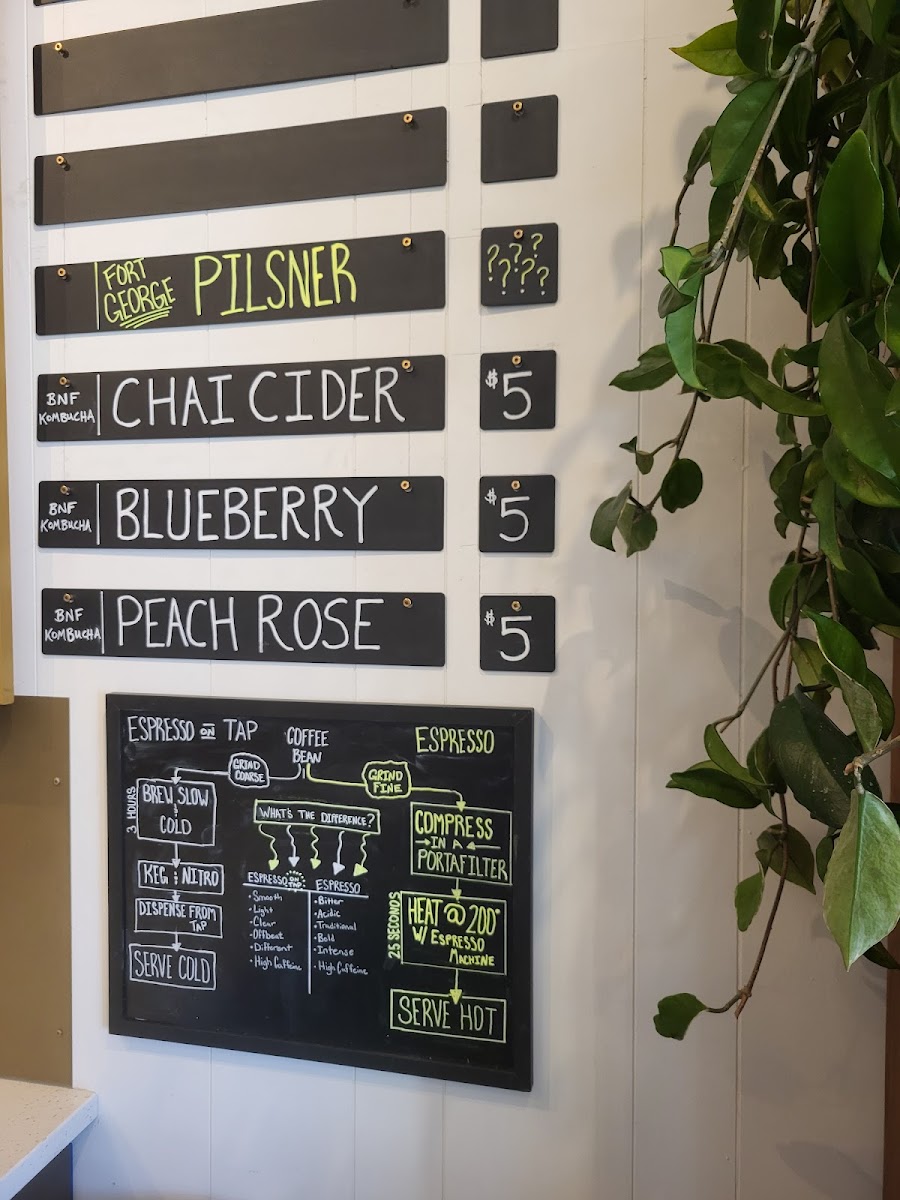 FORT
GEORGE
PILSNER
??????
BNF
KOMBUCHA
CHAI CIDER
$5
BNF
KOMBUCHA
BLUEBERRY
$5
BNF
KOMBUCHA
PEACH ROSE
$5
ESPRESSO ON TAP
COFFEE
BEAN
ESPRESSO
GRIND
COARSE
GRIND
FINE
3 HOURS
BREW SLOW
&
COLD
KEG & NITRO
DISPENSE FROM
TAP
SERVE COLD
WHAT'S THE DIFFERENCE?
ESPRESSO ON TAP
• Smooth
• Light
• Clear
• Offbeat
• Different
• High Caffeine
ESPRESSO
• Bitter
• Acidic
• Traditional
• Bold
• Intense
• High Caffeine
COMPRESS
IN A
PORTAFILTER
25 SECONDS
HEAT @ 200°
W/ ESPRESSO
MACHINE
SERVE HOT